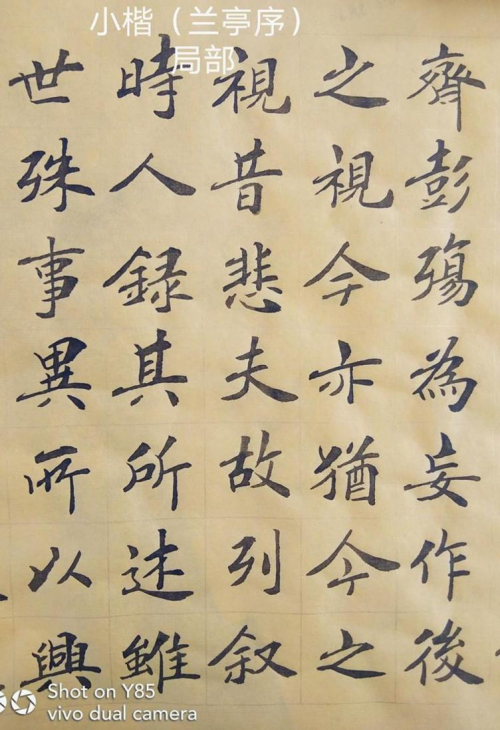 小楷（兰亭序）
局部
齊彭殤為妄作後
之視今亦猶今之
視昔悲夫故列叙
時人錄其所述雖
世殊事異所以興
Shot on Y85
vivo dual camera